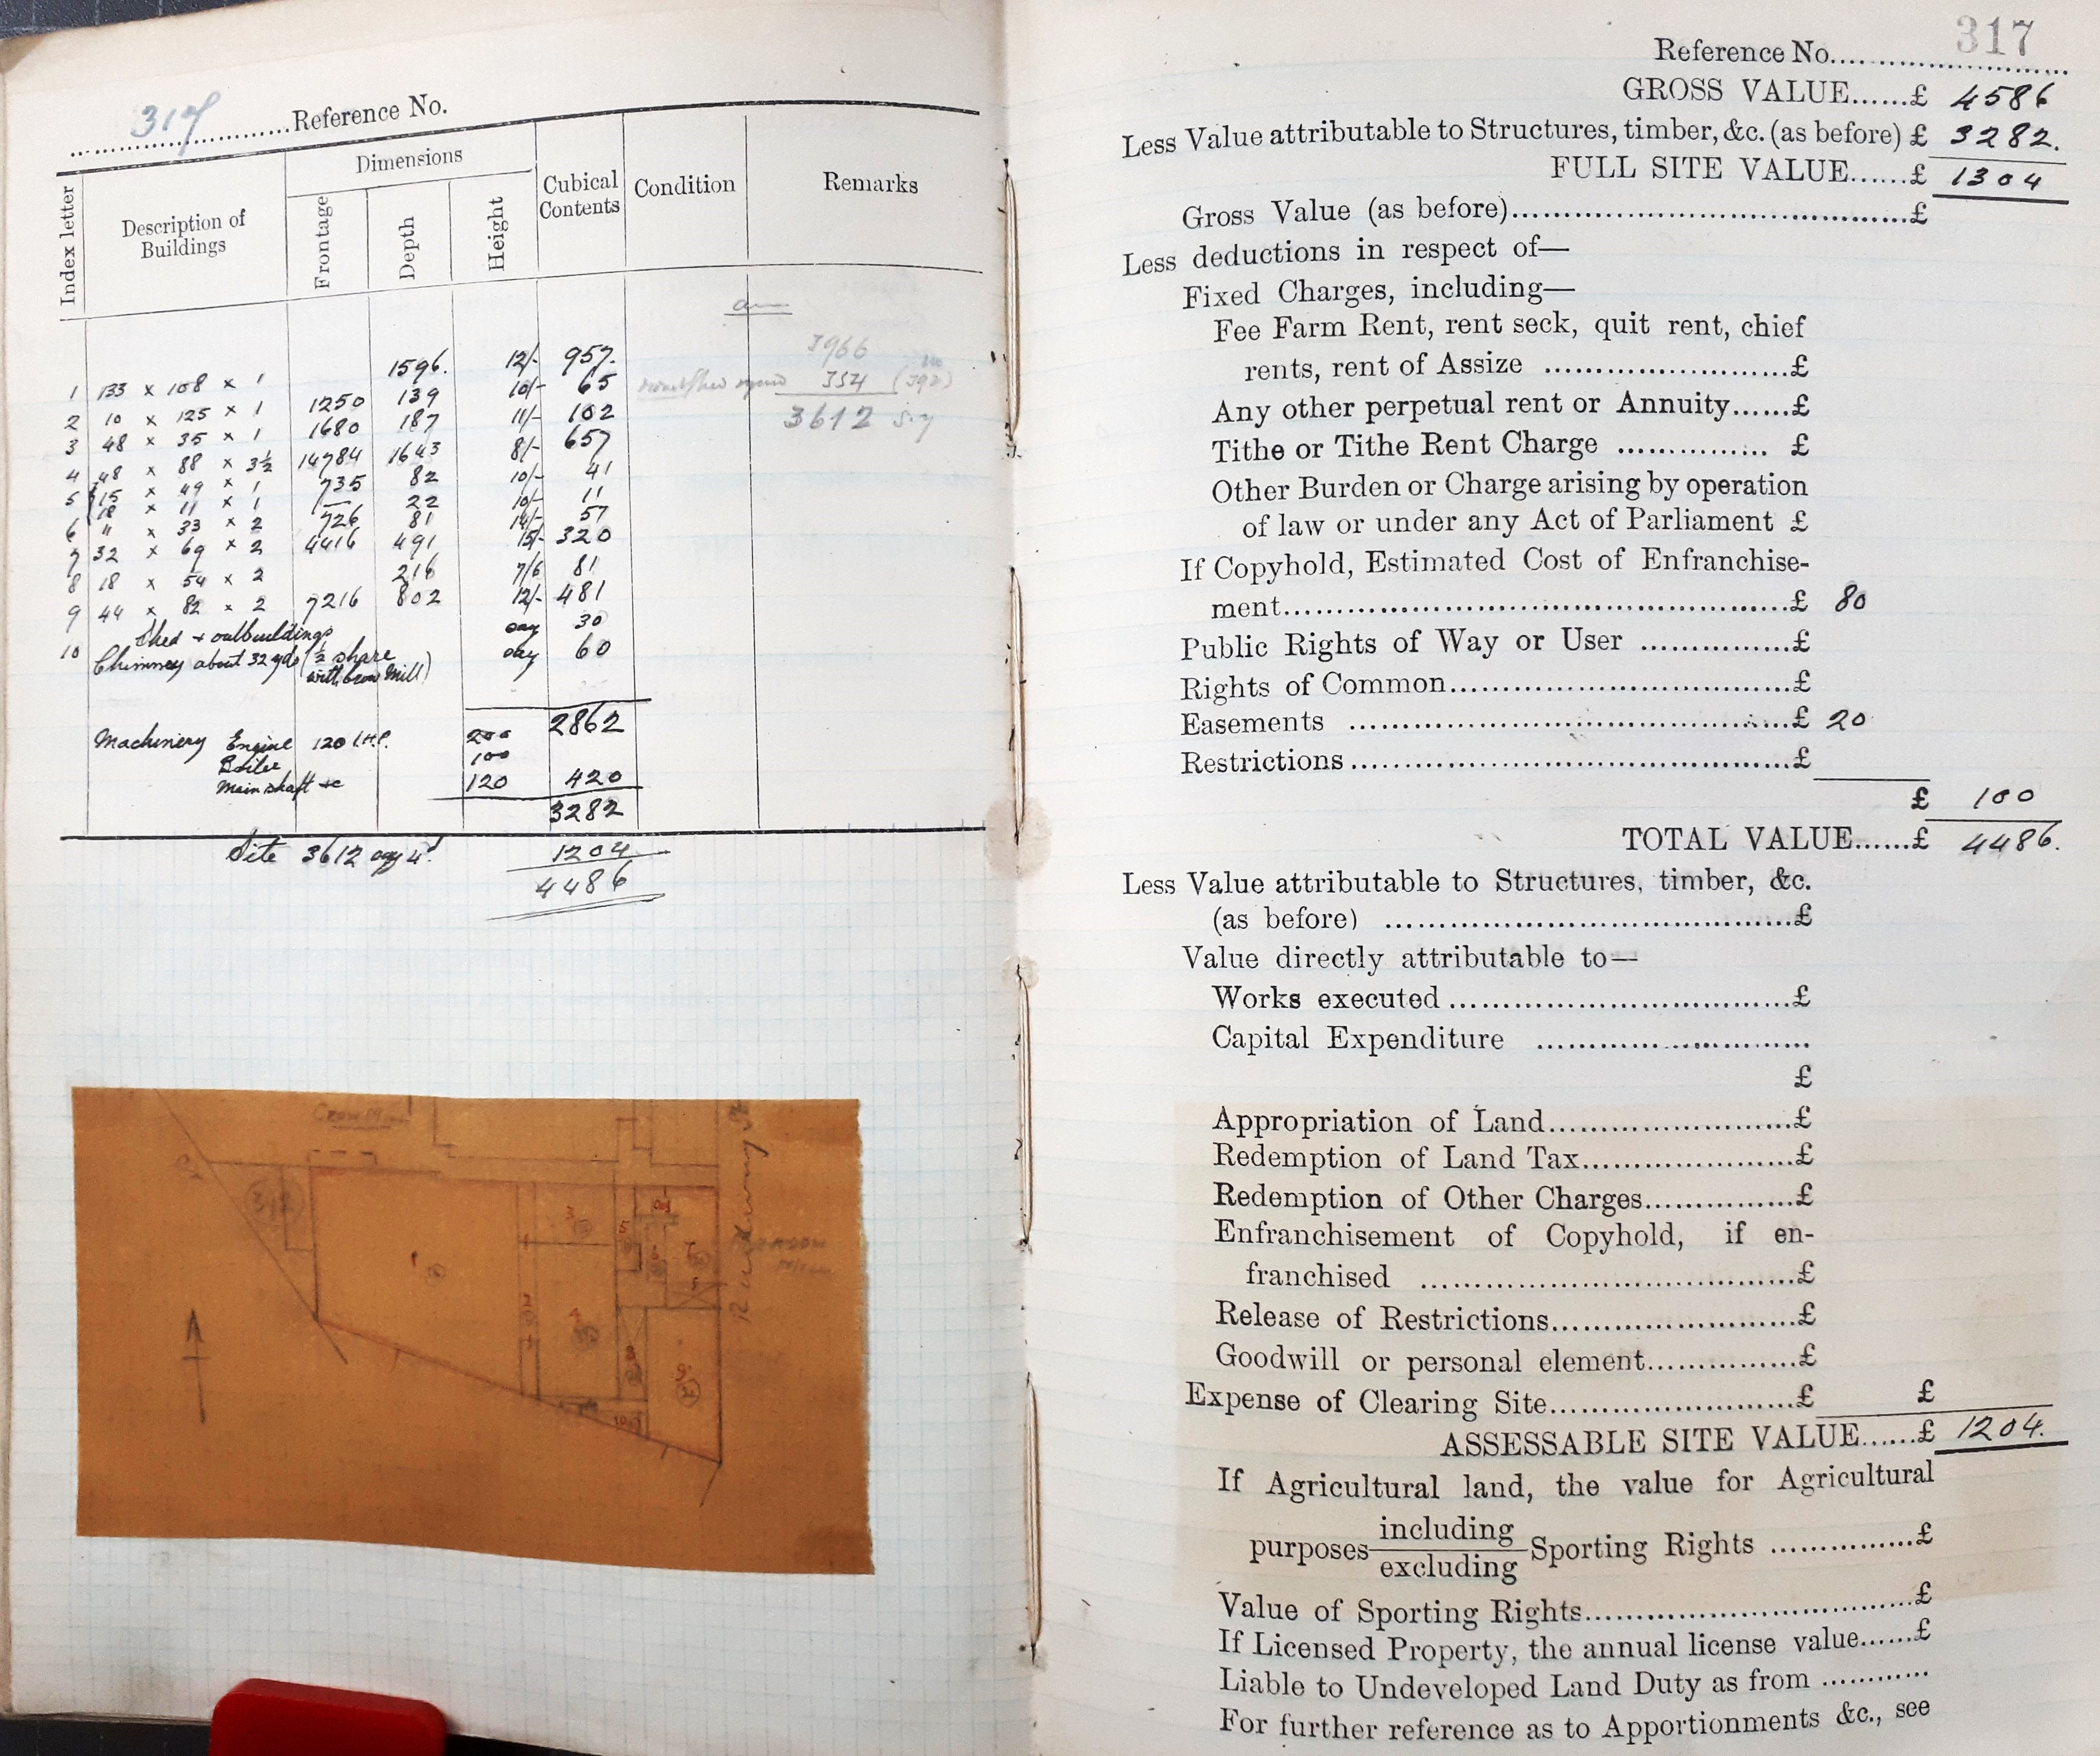 317 Reference No.
Index letter
Description of Buildings
Dimensions
Frontage
Depth
Height
Cubical Contents
Condition
Remarks
1 133 x 108 x 1 1596. 12/- 957.
2 10 x 125 x 1 1250 139 10/- 65
3 48 x 35 x 1 1680 187 11/- 102
4 48 x 88 x 3½ 14784 1643 8/- 657
5 15 x 49 x 1 735 82 10/- 41
18 x 11 x 1 — 22 10/- 11
6 " x 33 x 2 726 81 14/- 57
7 32 x 69 x 2 4416 491 15/- 320
8 18 x 54 x 2 216 7/6 81
9 44 x 82 x 2 7216 802 12/- 481
10 Shed + outbuildings say 30
Chimney about 32 yds (½ share say 60
with Mill)
2862
Machinery Engine 120 I.H.P. 200
Boiler 100
Main shaft &c 120 420
3282
Site 3612 @ 4d. 1204
4486
3966
354
3612 s.y
312
1
2
3
4
5
6
7
8
9
317
Reference No.
GROSS VALUE......£ 4586
Less Value attributable to Structures, timber, &c. (as before) £ 3282.
FULL SITE VALUE......£ 1304
Gross Value (as before)......£
Less deductions in respect of—
Fixed Charges, including—
Fee Farm Rent, rent seck, quit rent, chief
rents, rent of Assize ......£
Any other perpetual rent or Annuity......£
Tithe or Tithe Rent Charge ......£
Other Burden or Charge arising by operation
of law or under any Act of Parliament £
If Copyhold, Estimated Cost of Enfranchise-
ment......£ 80
Public Rights of Way or User ......£
Rights of Common......£
Easements ......£ 20
Restrictions......£
£ 100
TOTAL VALUE......£ 4486.
Less Value attributable to Structures, timber, &c.
(as before) ......£
Value directly attributable to—
Works executed......£
Capital Expenditure ......
£
Appropriation of Land......£
Redemption of Land Tax......£
Redemption of Other Charges......£
Enfranchisement of Copyhold, if en-
franchised ......£
Release of Restrictions......£
Goodwill or personal element......£
Expense of Clearing Site......£ £
ASSESSABLE SITE VALUE......£ 1204.
If Agricultural land, the value for Agricultural
purposes including
excluding Sporting Rights ......£
Value of Sporting Rights......£
If Licensed Property, the annual license value......£
Liable to Undeveloped Land Duty as from ......
For further reference as to Apportionments &c., see